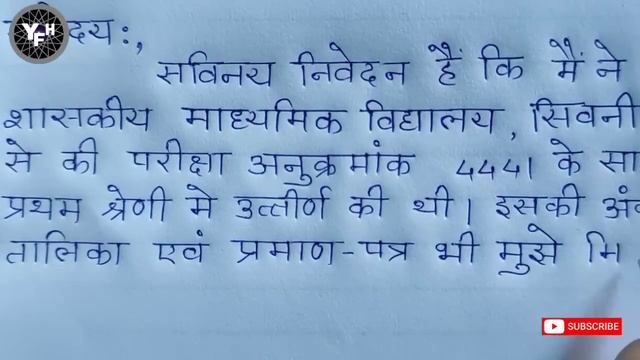 दय:,
सविनय निवेदन हैं कि मैं ने
शासकीय माध्यमिक विद्यालय, सिवनी
से की परीक्षा अनुक्रमांक 4441 के सा
प्रथम श्रेणी मे उत्तीर्ण की थी। इसकी अं
तालिका एवं प्रमाण-पत्र भी मुझे मि
YFH
SUBSCRIBE